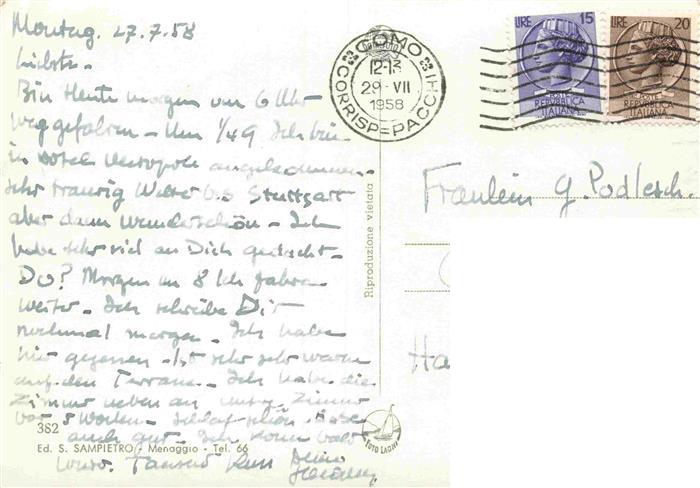 Montag. 27.7.58
Liebste -
Bin Heute morgen um 6 Uhr
weggefahren - Um 1/49 Ich bin
in Hotel Metropole angekommen -
Sehr traurig Wetter bis Stuttgart
aber dann wunderschön - Ich
habe sehr viel an Dich gedacht -
Du? Morgen um 8 Ich fahre
weiter - Ich schreibe Dir
nochmal morgen - Ich habe
hier gegessen - Ist sehr sehr warm
auf den Terrasse - Ich habe die
Zimmer neben an Zimmer
vor 5 Wochen - Schlaf schön
auch gut - Ich komm bald
Tausend Kuss Deine
382
Ed. S. SAMPIETRO - Menaggio - Tel. 66
Riproduzione vietata
FOTO LAGHI
COMO
CORRISP=PACCHI
12-13
29·VII
1958
LIRE 15
POSTE
REPUBBLICA
ITALIANA
LIRE 20
POSTE
REPUBBLICA
ITALIANA
Fräulein G. Podlesch.
Ha